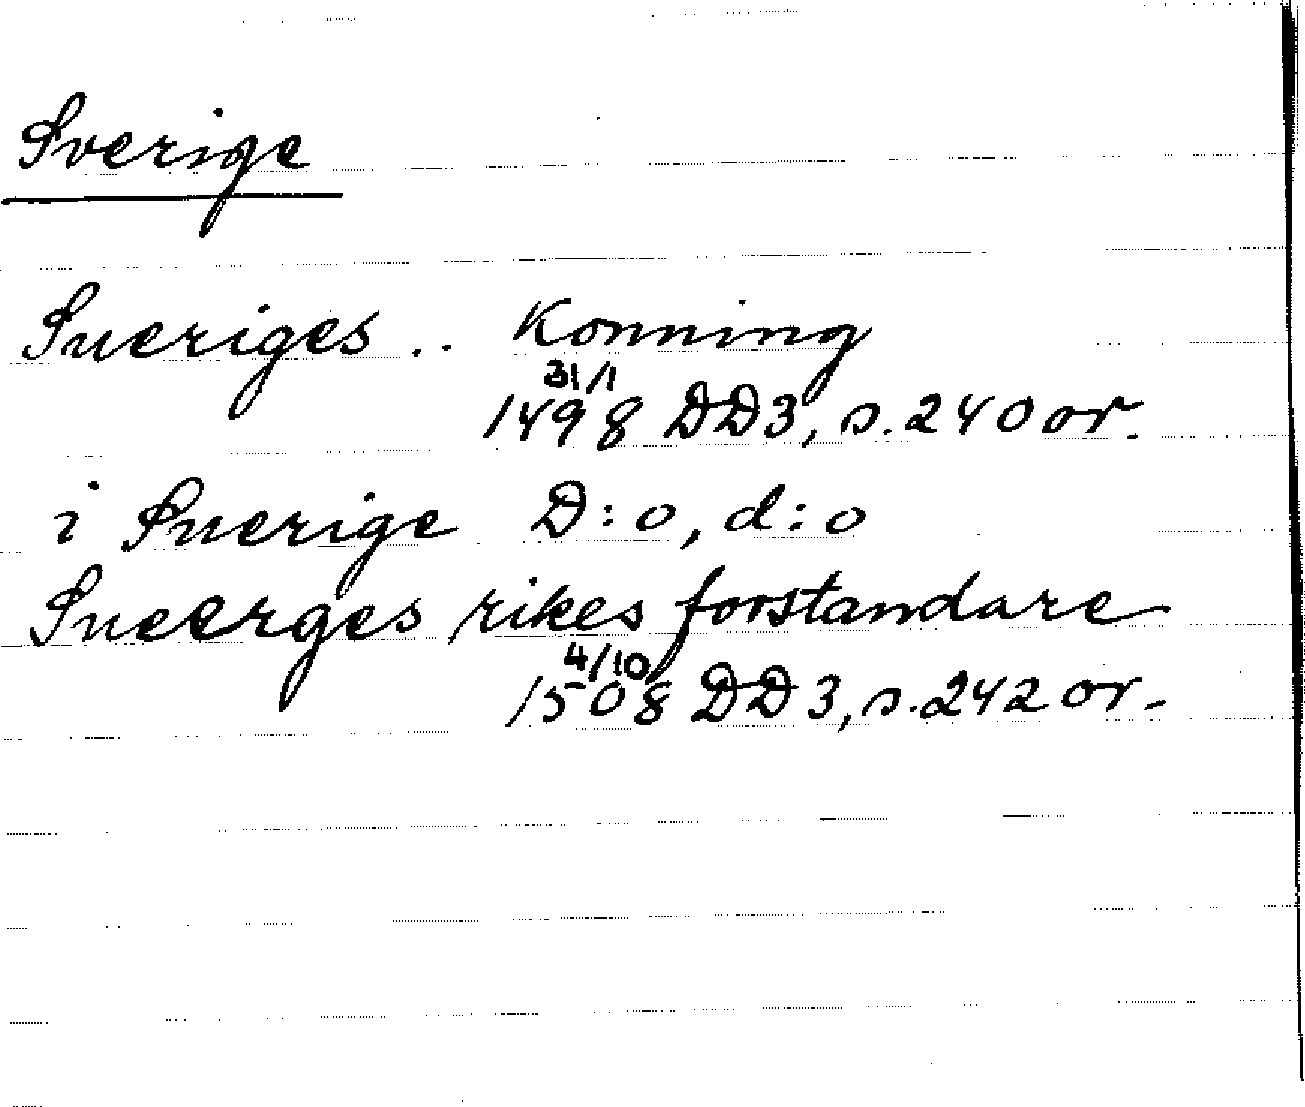 Sverige
Sueriges .. Konning
31/1
1498 DD3, s. 240 or.
i Suerige D:o, d:o
Sueerges rikes forstandare
4/10
1508 DD3, s. 242 or.